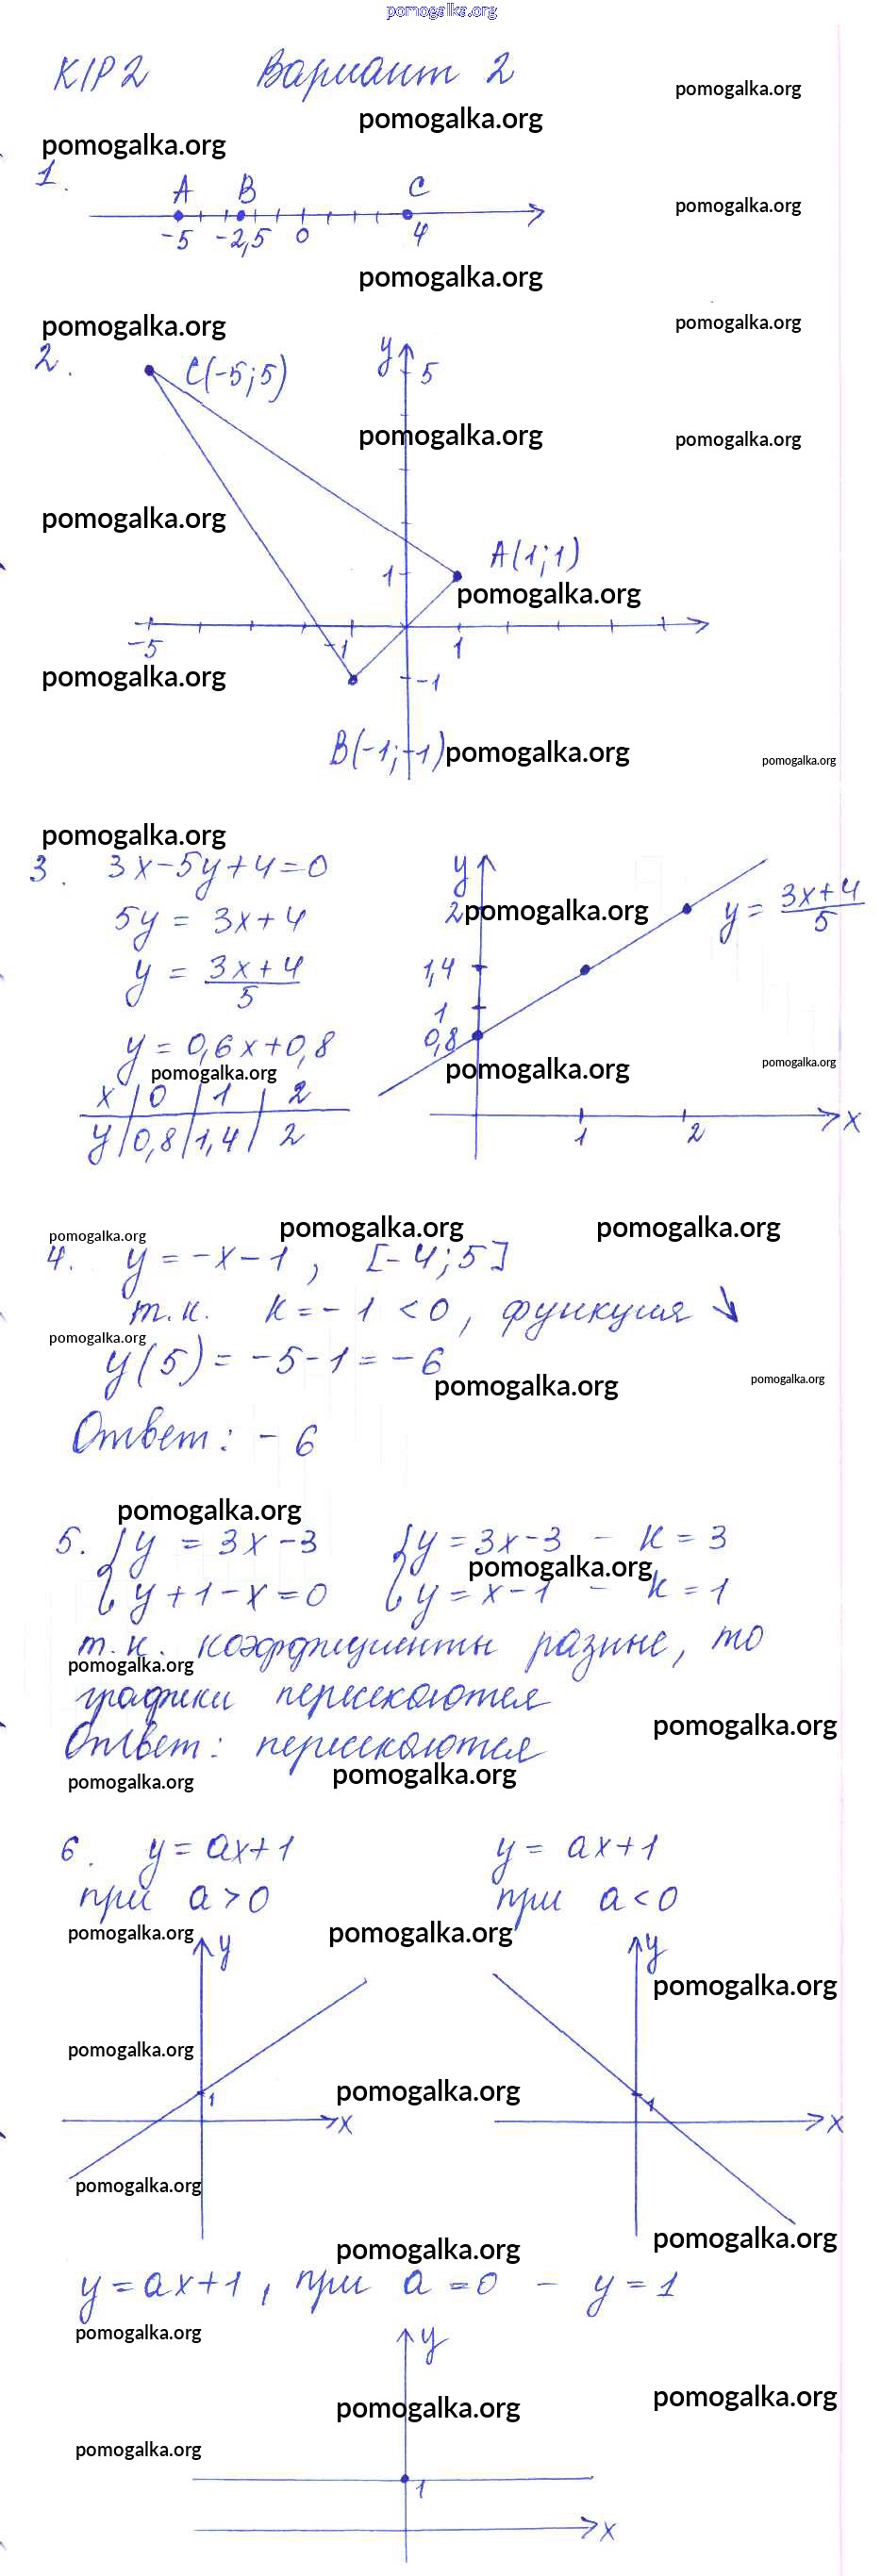 pomogalka.org
К/Р 2 Вариант 2
pomogalka.org
pomogalka.org
pomogalka.org
1.
A B C
pomogalka.org
-5 -2,5 0 4
pomogalka.org
pomogalka.org
pomogalka.org
2. C(-5;5) y 5
pomogalka.org
pomogalka.org
pomogalka.org
A(1;1)
1
pomogalka.org
-5 -1 1
pomogalka.org
-1
B(-1;-1) pomogalka.org
pomogalka.org
pomogalka.org
3. 3x-5y+4=0 y
5y = 3x+4 2 pomogalka.org y = (3x+4)/5
y = (3x+4)/5 1,4
1
y = 0,6x+0,8 0,8
pomogalka.org pomogalka.org pomogalka.org
x | 0 | 1 | 2
y | 0,8 | 1,4 | 2
1 2 x
pomogalka.org pomogalka.org pomogalka.org
4. y = -x-1, [-4;5]
т.к. k = -1 < 0, функция ↘
pomogalka.org
y(5) = -5-1 = -6
pomogalka.org pomogalka.org
Ответ: -6
pomogalka.org
5. { y = 3x-3 { y = 3x-3 - k = 3
pomogalka.org
y+1-x=0 y = x-1 - k = 1
т.к. коэффициенты разные, то
pomogalka.org
графики пересекаются
pomogalka.org
Ответ: пересекаются
pomogalka.org pomogalka.org
6. y = ax+1 y = ax+1
при a>0 при a<0
pomogalka.org pomogalka.org
y y
pomogalka.org
pomogalka.org
pomogalka.org
1 1
x x
pomogalka.org
pomogalka.org pomogalka.org
y=ax+1, при a=0 - y=1
pomogalka.org
y
pomogalka.org pomogalka.org
pomogalka.org
1
x